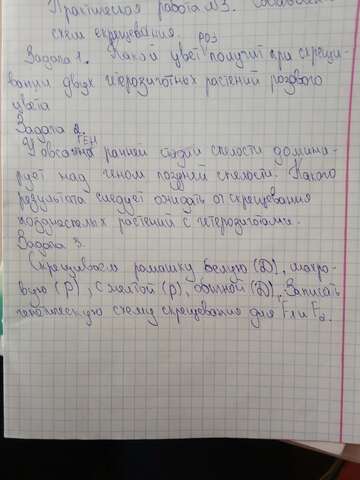 Практическая работа №3. Составление
схем скрещивания.
Задача 1. Какой цвет роз получит при скрещи-
вании двух гетерозиготных растений розового
цвета
Задача 2.
У овса ген ранней стадии спелости домини-
рует над геном поздней спелости. Какого
результата следует ожидать от скрещивания
позднеспелых растений с гетерозиготами.
Задача 3.
Скрещиваем ромашку белую (D), махро-
вую (Р), с желтой (р), обычной (D). Записать
генетическую схему скрещивания для F1 и F2.